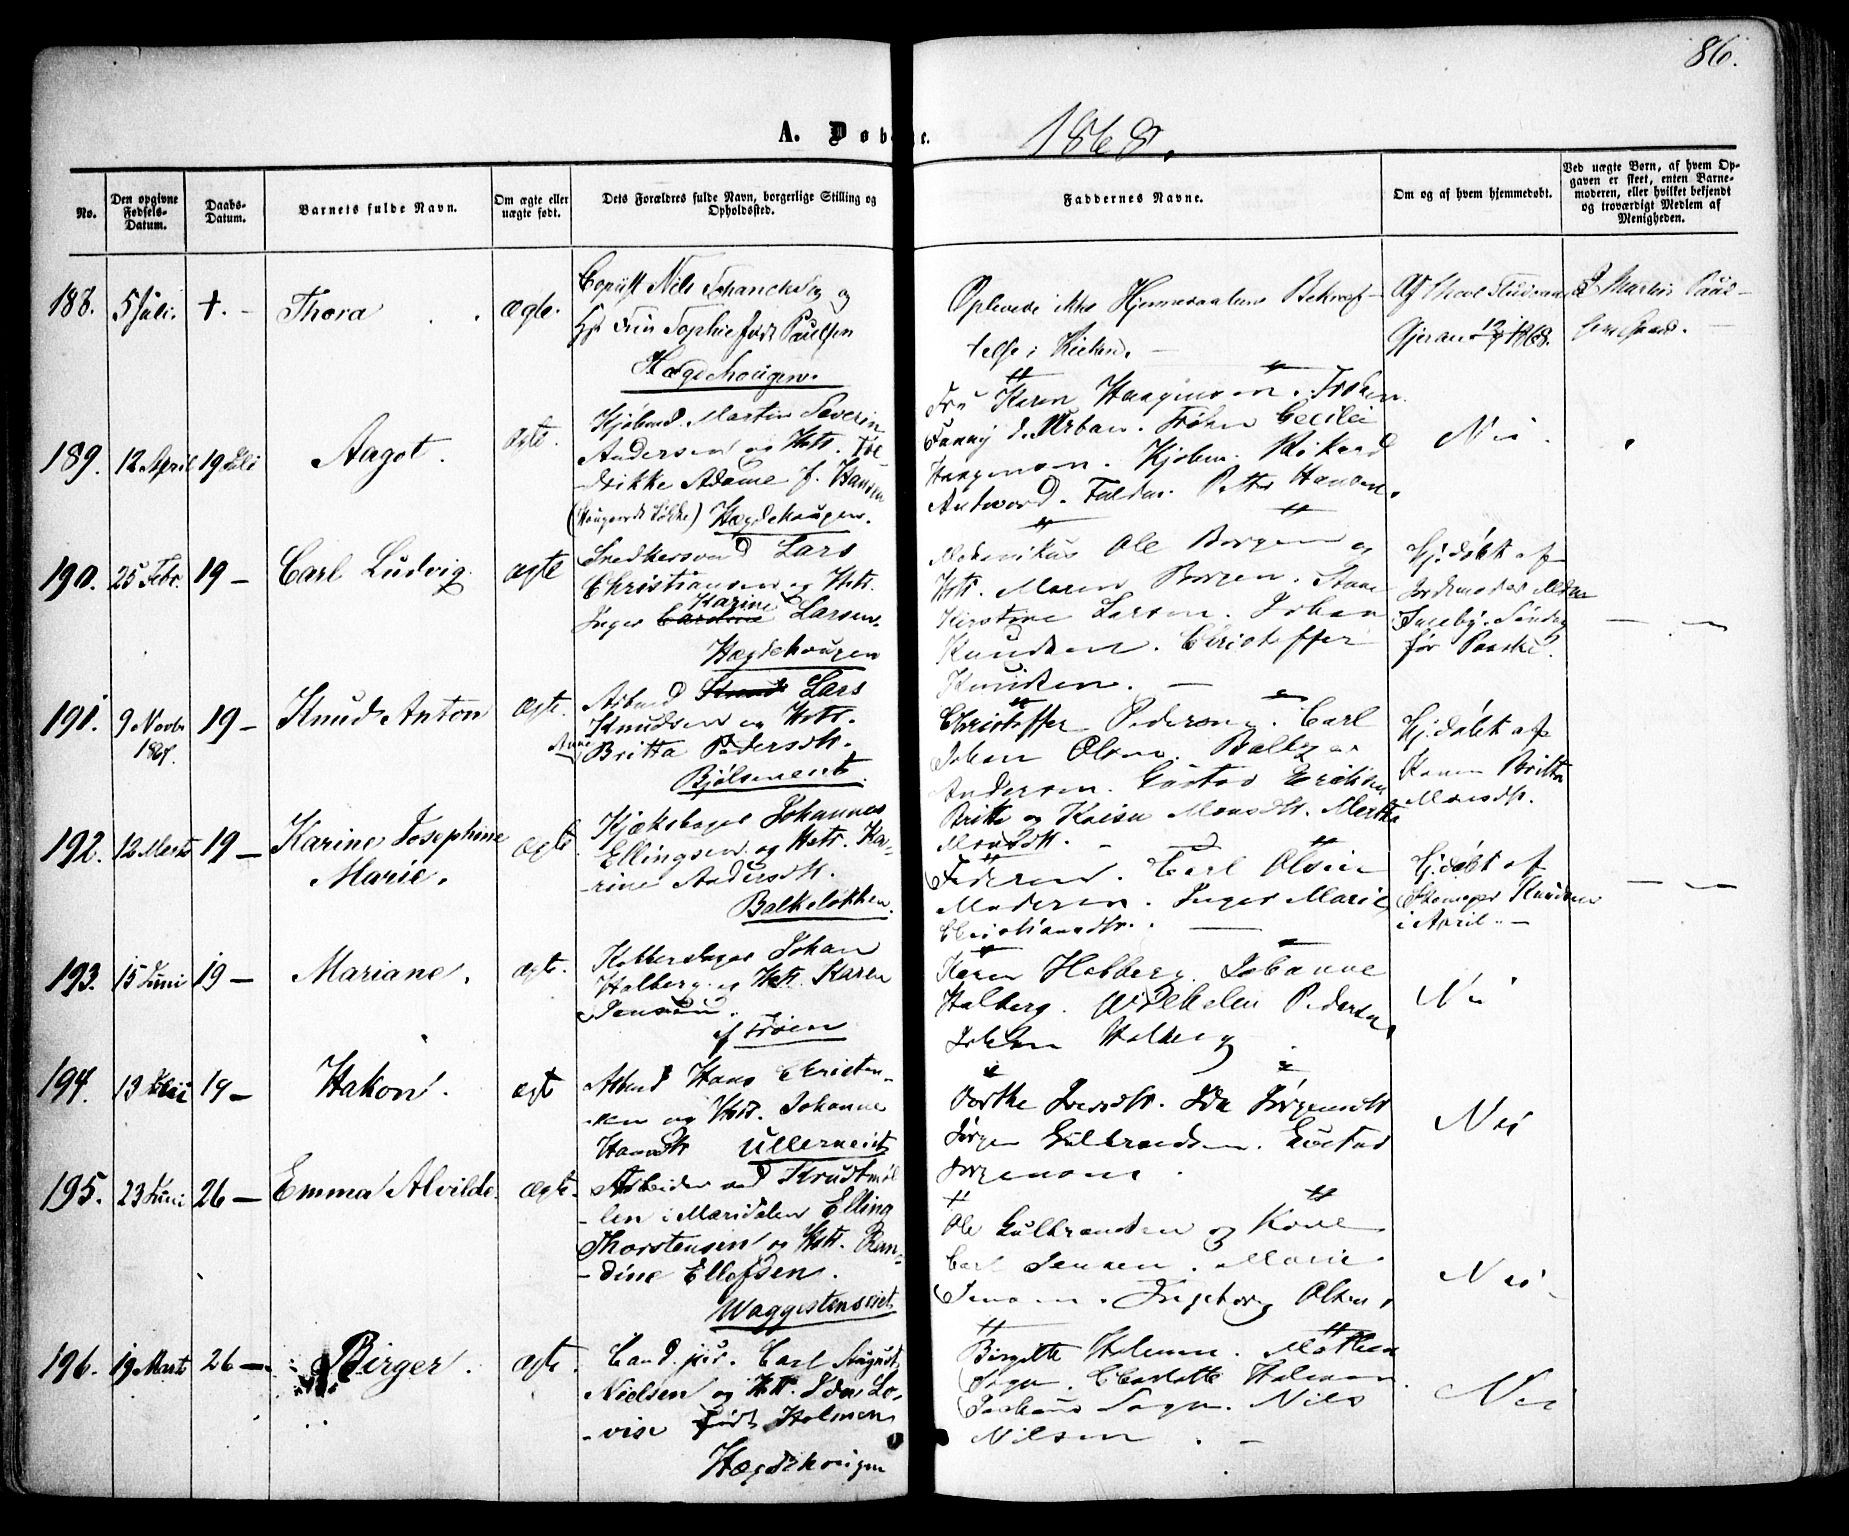 86.
A. Døbte.
1868.
No.
Den opgivne Fødsels-Datum.
Daabs-Datum.
Barnets fulde Navn.
Om ægte eller uægte født.
Dets Forældres fulde Navn, borgerlige Stilling og Opholdssted.
Faddernes Navne.
Om og af hvem hjemmedøbt.
Ved uægte Børn, af hvem Opgaven er skeet, enten Barnemoderen, eller hvilket bekjendt og troværdigt Medlem af Menigheden.
188. 5 Juli. †. - Thora ægte.
Copiist Nils og
Sophie født Paulsen
Hægdehougen.
Oplevede ikke Hjemmedaabens Bekræf-
telse i Kirken. -
1868.
189. 12 April 19 Juli Aagot. ægte.
Kjøbmd. Martin Severin
Andersen og Hst. Fre-
drikke Adame f. Hansen
Hægdehougen.
Fru Karen Haagensen. Frøken
Fanny d. Urban. Frøken Cecilie
Haagensen. Kjøbm. Rikard
Petter Hansen.
Nei.
190. 25 Febr. 19 - Carl Ludvig. ægte
Snedkersvend Lars
Christiansen og Hst.
Karine
Inger Caroline Larsen.
Hægdehougen
Ole Borgen og
Hst. Maren Borgen.
Kirstine Larsen. Johan
Knudsen. Christoffer
Knudsen. -
Hj.døbt af
Jordemoder
Søndag
før Paaske.
191. 9 Novbr. 19 - Knud Anton ægte.
1867.
Arbmd Knud Lars
Knudsen og Hst.
Anne
Britta Pedersdtr.
Bjølseneiet.
Christoffer Pedersen. Carl
Johan Olsen. Baltzer
Andersen. Gustav Eriksen
Britte og Kaisa Monsdtr. Marthe
Monsdtr. -
Hj.døbt af
Konen Britta
Monsdtr.
192. 12 Marts 19 - Karine Josephine ægte
Marie.
Kjæksbager Johannes
Ellingsen og Hst. Ka-
rine Andersdtr.
Balkeløkken.
Faderen. Carl Olsen
Moderen. Inger Marie
Christiansdtr.
Hj.døbt af
Knudsen
i April. -
193. 15 Juni 19 - Mariane. ægte.
Kobberslager Johan
Holberg og Hst. Karen
Jensen.
af Frøen
Karen Holberg. Johanne
Holberg. Wilhelm Pedersen,
Johan Holberg
Nei
194. 13 19 - Hakon. ægte
Arbmd Hans Christen-
sen og Hst. Johanne
Hansdtr. Ullerneiet
Dorthe Ida Jørgensdtr
Jørgen Gulbrandsen. Gustav
Jørgensen.
Nei
195. 23 Juni 26 - Emma Alvilde. ægte.
Arbeider ved Krudtmøl-
len i Maridalen Elling
Thorstensen og Hst. Ran-
dine Ellefsen.
Waggestenseiet
Ole Gulbrandsen og Kone
Carl Jensen. Marie
Jensen. Ingeborg Olsen.
Nei.
196. 19 Marts 26 - Birger. ægte.
Cand. jur. Carl August
Nielsen og Hst. Ida Lo-
vise født Holmen
Hægdehougen
Birgitte Holmen. Mathea
Sogn. Charlotte Holmen
Sogn. Nils
Nilsen. -
Nei